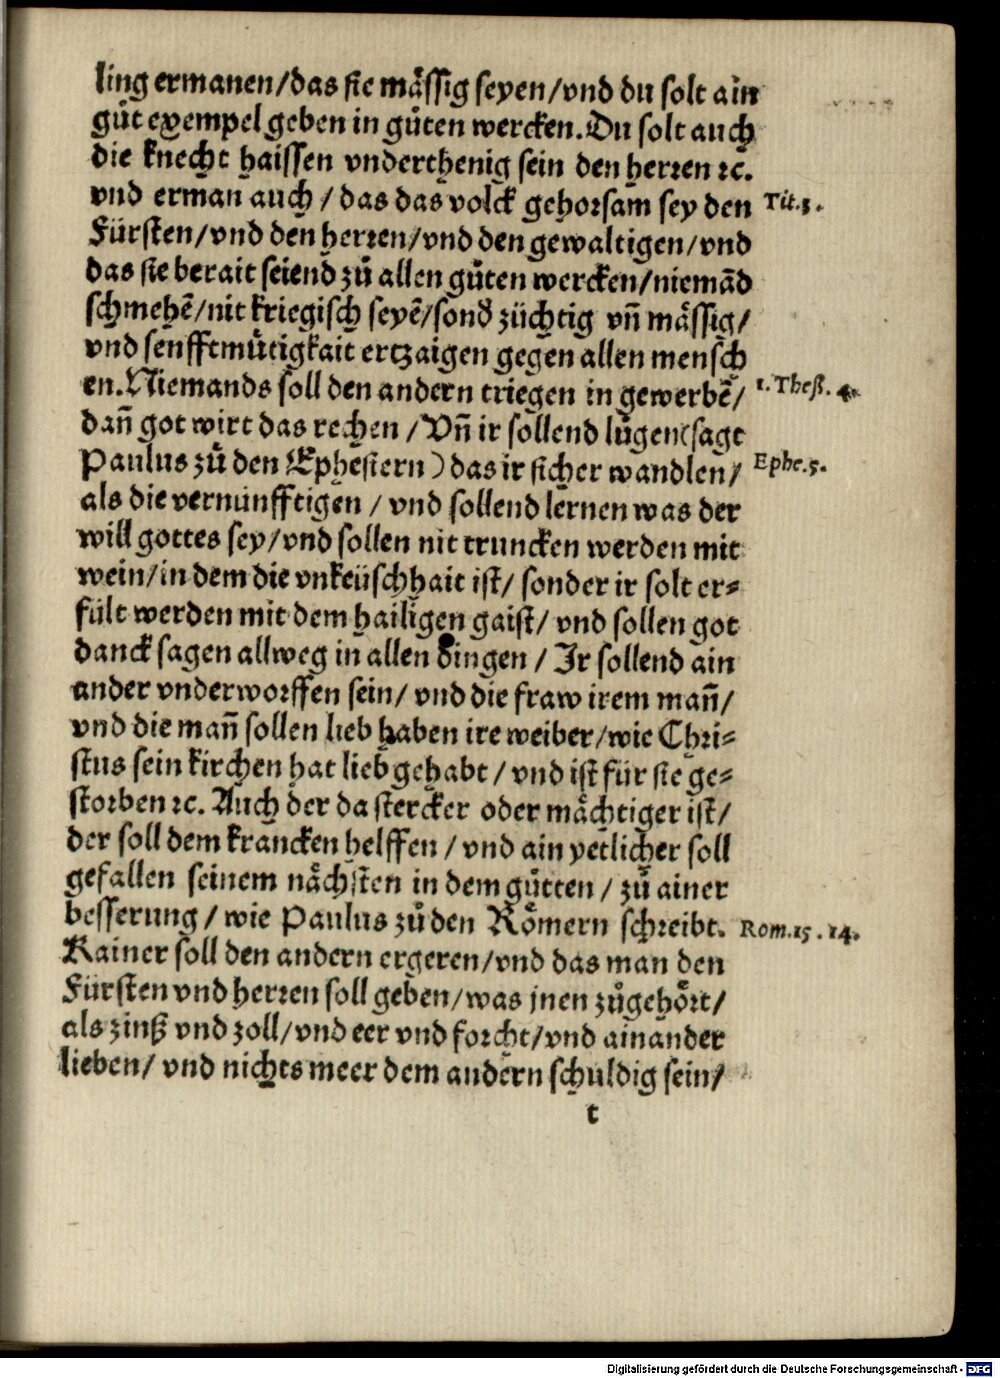 ling ermanen/das sie mässig seyen/vnd du solt ain
gůt exempel geben in gůten wercken. Du solt auch
die knecht haissen vnderthenig sein den herren ꝛc.
vnd erman auch / das das volck gehorsam sey den Tit.3.
Fürsten/vnd den herren/vnd den gewaltigen/vnd
das sie berait seiend zů allen gůten wercken/niemãd
schmehẽ/nit kriegisch seyẽ/sond̾ züchtig vñ mässig/
vnd senfftmůtigkait ertzaigen gegen allen mensch
en. Niemands soll den andern triegen in gewerbẽ/ 1. Thess. 4.
dañ got wirt das rechen / Vñ ir sollend lůgen(sagt
Paulus zů den Ephesiern) das ir sicher wandlen/ Ephe.5.
als die vernünfftigen / vnd sollend lernen was der
will gottes sey/vnd sollen nit truncken werden mit
wein/in dem die vnkeüschhait ist/ sonder ir solt er-
fült werden mit dem hailigen gaist/ vnd sollen got
danck sagen allweg in allen dingen / Ir sollend ain
ander vnderworffen sein/ vnd die fraw irem mañ/
vnd die mañ sollen lieb haben ire weiber/wie Chri-
stus sein kirchen hat lieb gehabt / vnd ist für sie ge-
storben ꝛc. Auch der da stercker oder mächtiger ist/
der soll dem krancken helffen / vnd ain yetlicher soll
gefallen seinem nächsten in dem gůtten / zů ainer
besserung / wie Paulus zů den Römern schreibt. Rom.15.14.
Kainer soll den andern ergeren/vnd das man den
Fürsten vnd herren soll geben/was jnen zůgehört/
als zinß vnd zoll/vnd eer vnd forcht/vnd ainander
lieben/ vnd nichts meer dem andern schuldig sein/
t
Digitalisierung gefördert durch die Deutsche Forschungsgemeinschaft - DFG